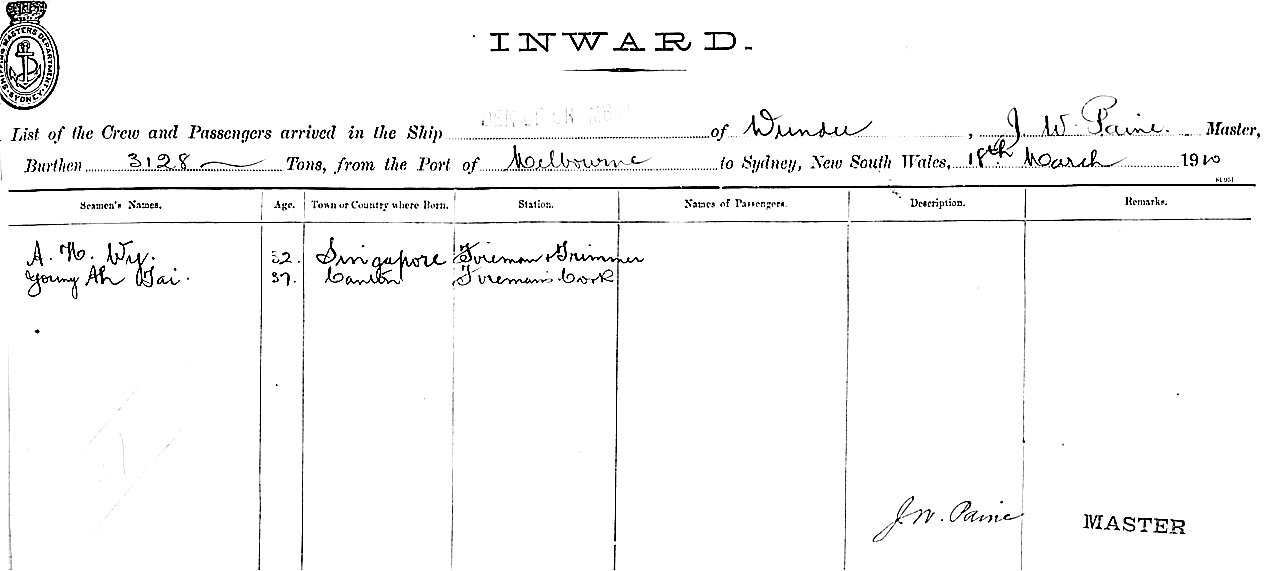 SHIPPING MASTERS DEPARTMENT SYDNEY
INWARD.
List of the Crew and Passengers arrived in the Ship of Dundee, J. W. Paine. Master,
Burthen 3128 Tons, from the Port of Melbourne to Sydney, New South Wales, 18th March 1910
Seamen's Names. Age. Town or Country where Born. Station. Names of Passengers. Description. Remarks.
A. N. Wy. 32. Singapore Fireman & Trimmer
Young Ah Tai. 37. Canton Fireman's Cook
J. W. Paine MASTER